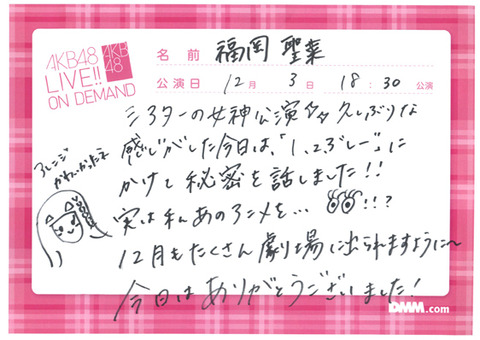 AKB48
LIVE!!
ON DEMAND
AKB
48
名 前 福岡 聖菜
公演日 12月 3日 18:30 公演
シアターの女神公演 久しぶりな
感じがした今日は、「1、2ぶし〜」に
かけて秘密を話しました!!
実は私あのアニメを… !!?
12月もたくさん劇場に出られますように〜
今日はありがとうございました!
アレンジ
かわいかったネ
DMM.com